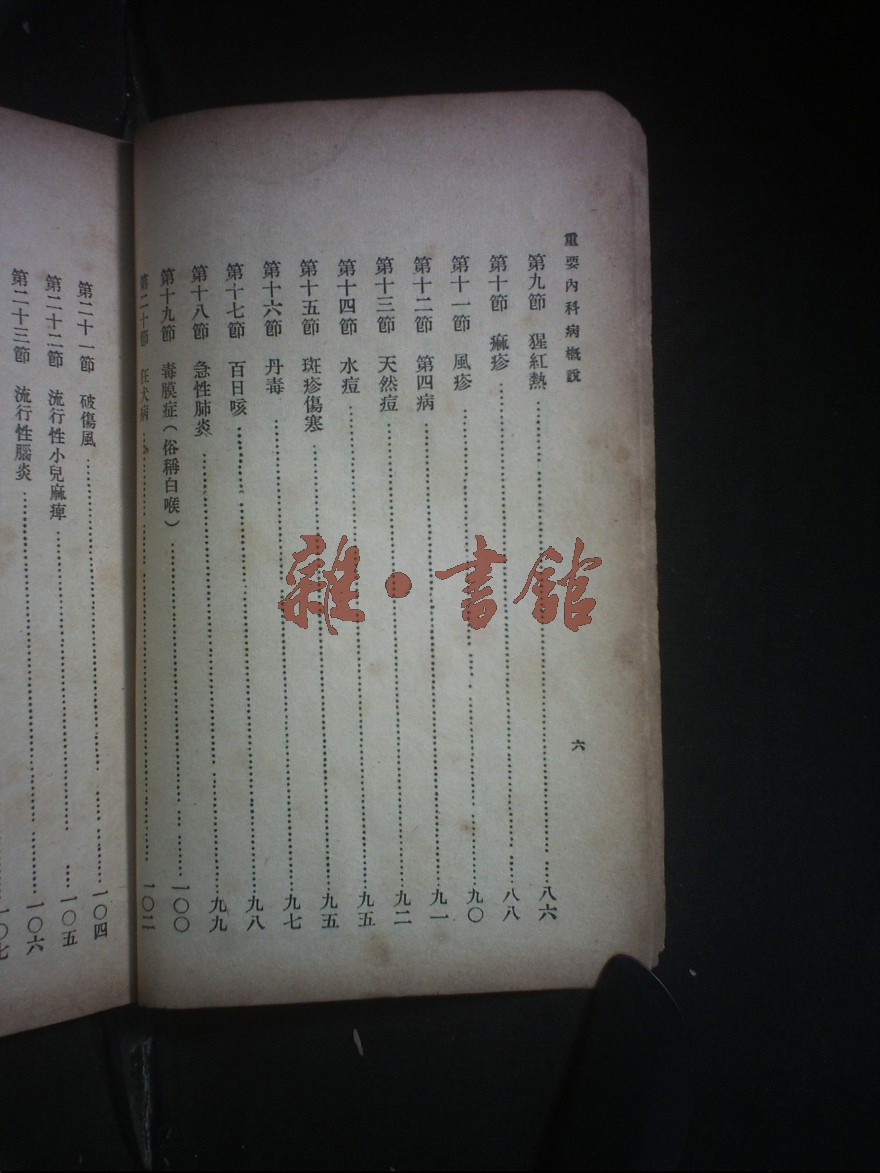 重要內科病概說
六
第九節 猩紅熱………八六
第十節 痲疹………八八
第十一節 風疹………九〇
第十二節 第四病………九一
第十三節 天然痘………九二
第十四節 水痘………九五
第十五節 斑疹傷寒………九五
第十六節 丹毒………九七
第十七節 百日咳………九八
第十八節 急性肺炎………九九
第十九節 毒膜症(俗稱白喉)………一〇〇
第二十節 狂犬病………一〇二
第二十一節 破傷風………一〇四
第二十二節 流行性小兒麻痺………一〇五
第二十三節 流行性腦炎………一〇六
一〇七
雜·書館